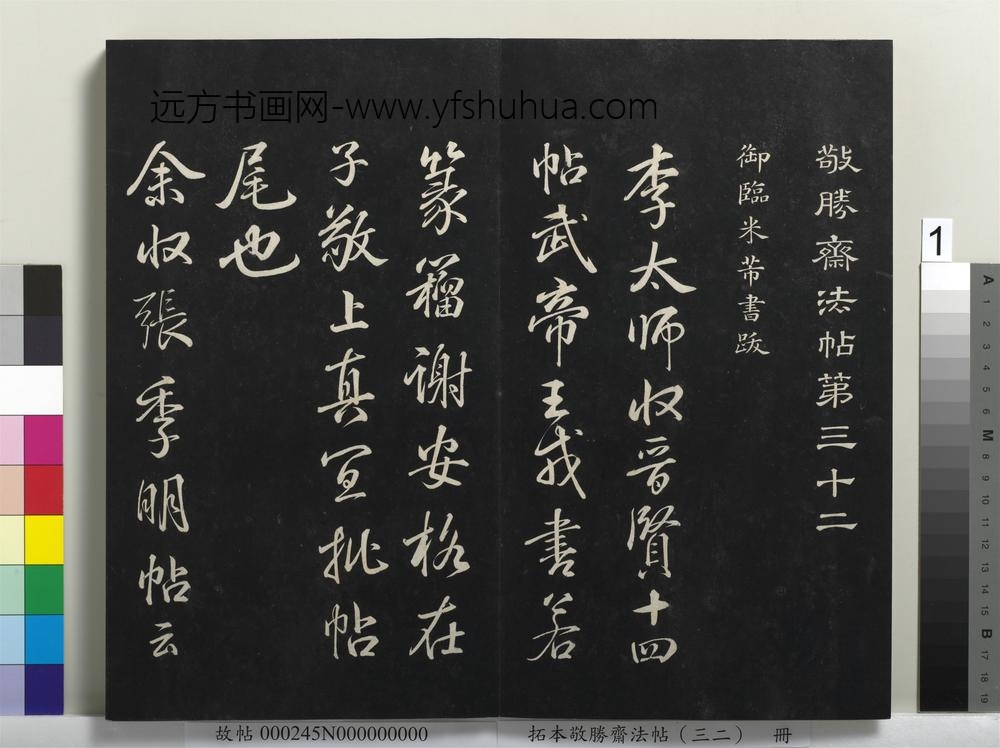 远方书画网-www.yfshuhua.com
敬勝齋法帖第三十二
御臨米芾書跋
李太师收晋賢十四
帖武帝王戎書若
篆籀谢安格在
子敬上真宜批帖
尾也
余收張季明帖云
1
A 1 2 3 4 5 6 M 8 9 10 11 12 13 14 15 B 17 18 19
故帖 000245N000000000
拓本敬勝齋法帖（三二） 冊